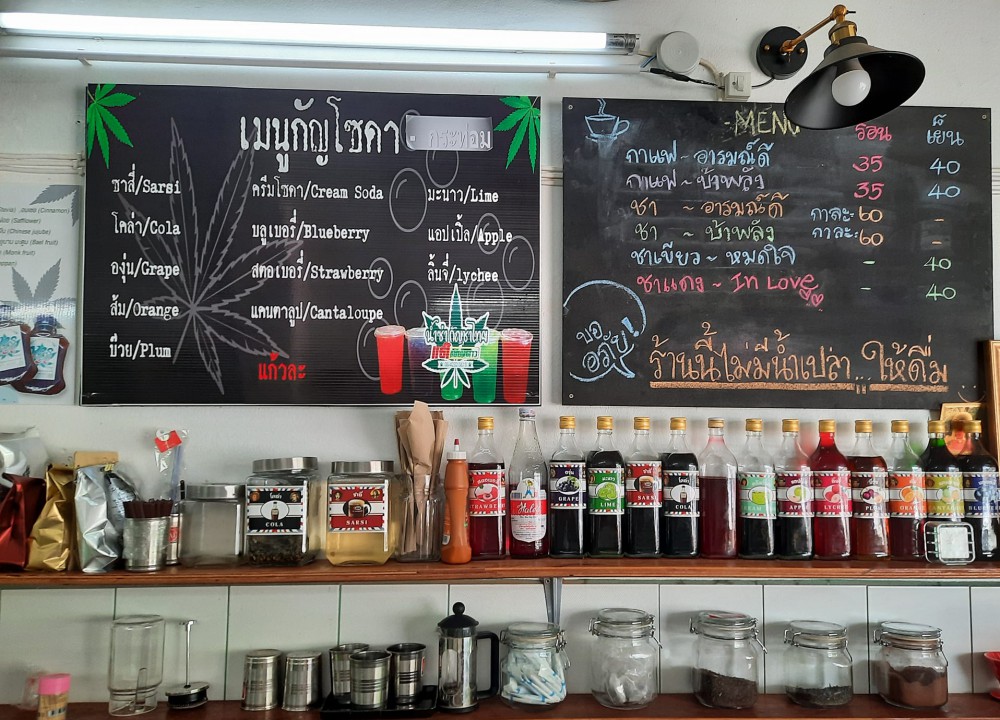 เมนูกัญโซดา
กระท่อม
ซาสี่/Sarsi
โคล่า/Cola
องุ่น/Grape
ส้ม/Orange
บ๊วย/Plum
ครีมโซดา/Cream Soda
บลูเบอรี่/Blueberry
สตอเบอรี่/Strawberry
แคนตาลูป/Cantaloupe
แก้วละ
มะนาว/Lime
แอปเปิ้ล/Apple
ลิ้นจี่/lychee
น้ำชากัญชาไทย
MENU ร้อน เย็น
กาแฟ - อารมณ์ดี 35 40
กาแฟ ~ บ้าพลัง 35 40
ชา ~ อารมณ์ดี กาละ: 60 -
ชา ~ บ้าพลัง กาละ: 60 -
ชาเขียว ~ หมดใจ - 40
ชาแดง ~ In Love - 40
ร้านนี้ไม่มีน้ำเปล่า... ให้ดื่ม
(Cinnamon)
(Safflower)
(Chinese jujube)
(Bael fruit)
(Monk fruit)
COLA
SARSI
GRAPE
LIME
SARSI
COLA
APPLE
PLUM